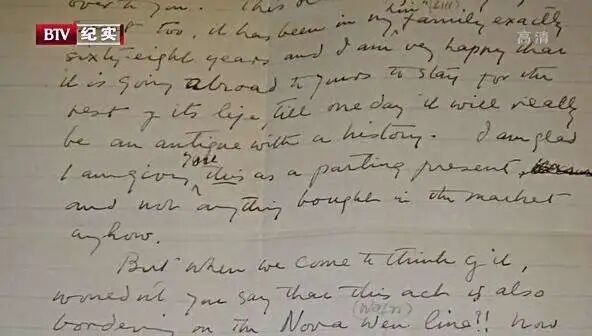 over to you. This
BTV 纪实
高清
too, it has been in my family exactly
sixty-eight years and I am very happy that
it is going abroad to yours to stay for the
rest of its life, till one day it will really
be an antique with a history. I am glad
I am giving you this as a parting present,
and not anything bought in the market
anyhow.
But when we come to think of it,
wouldn't you say that this act is also
bordering on the Nova line!! Now